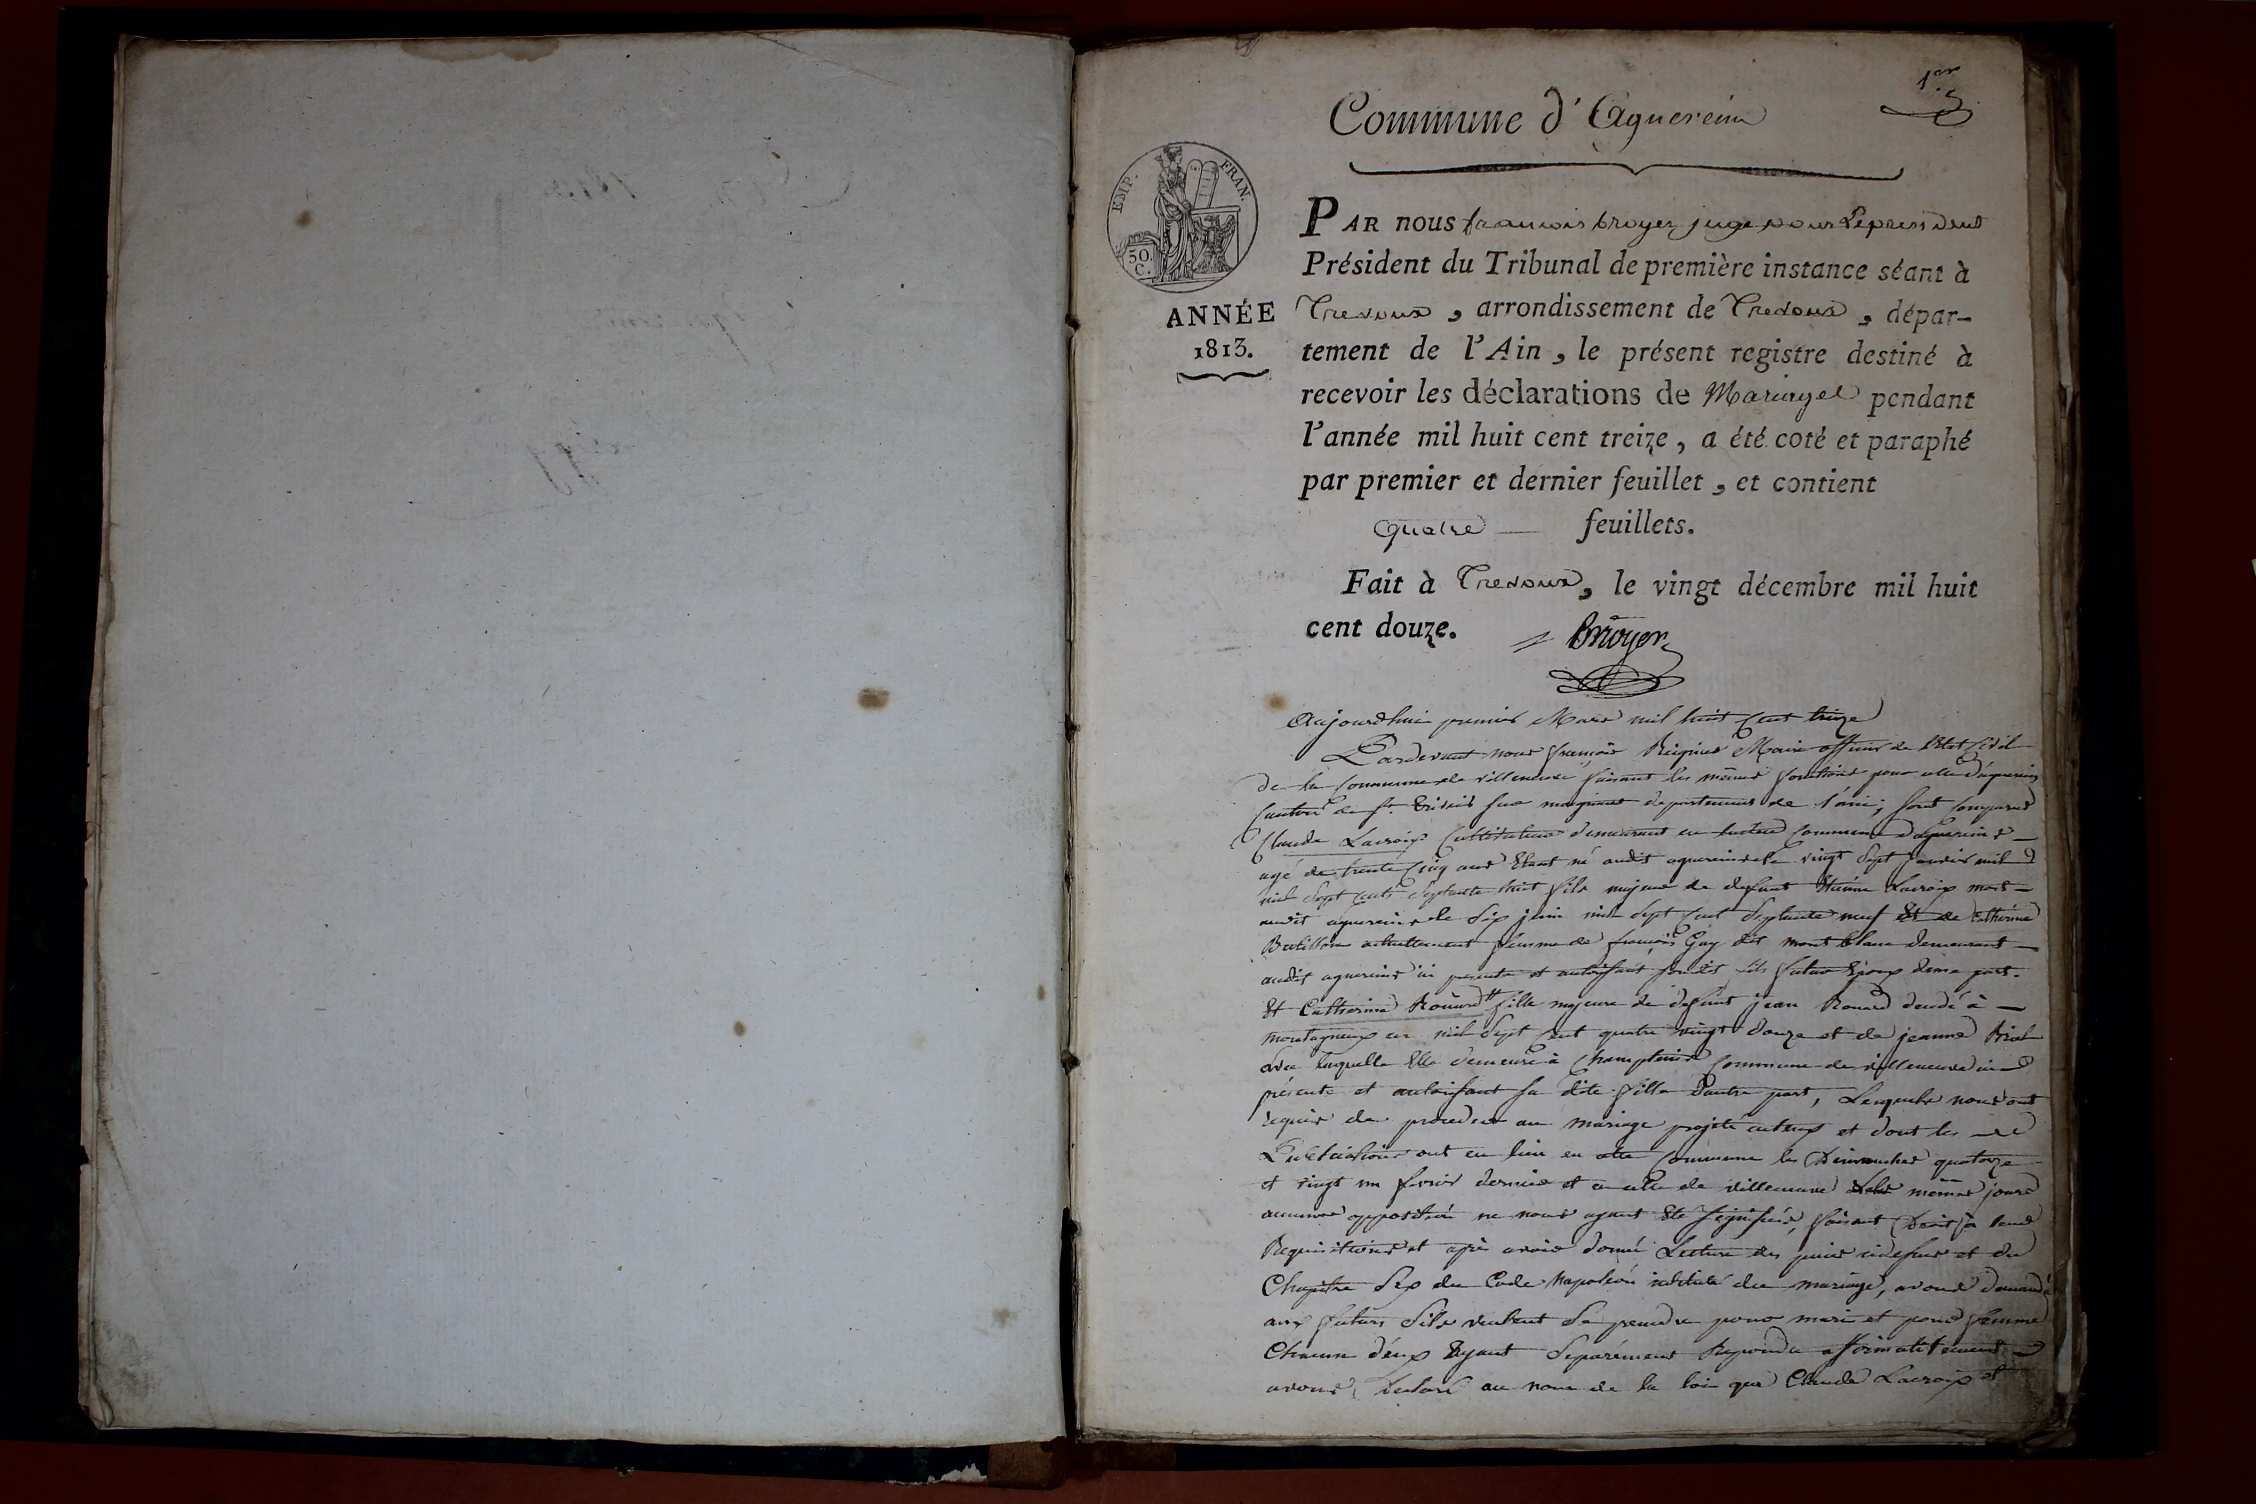 1er
Commune d'Aguereins
EMP. FRAN.
50. C.
ANNÉE
1813.
PAR nous francois broyer juge pour Le president
Président du Tribunal de première instance séant à
Trevoux, arrondissement de Trevoux, dépar-
tement de l'Ain, le présent registre destiné à
recevoir les déclarations de Mariages pendant
l'année mil huit cent treize, a été coté et paraphé
par premier et dernier feuillet, et contient
quatre feuillets.
Fait à Trevoux, le vingt décembre mil huit
cent douze. Broyer
Aujourdhui premier Mars mil huit Cent treize
Pardevant nous françois Maire officier de l'Etat Civil
de la Commune de villeneuve faisant les mêmes fonctions pour celle d'aguereins
Canton de St. trivier sur moignans departement de l'ain; sont Comparus
Claude Lacroix Cultivateur demeurant en Commune d'aguereins
agé de trente Cinq ans Etant né audit aguereins le vingt Sept janvier mil
mil Sept Cent Septante huit fils majeur de defunt Etienne Lacroix mort
audit aguereins le Six juin mil Sept Cent Septante neuf Et de Catherine
actuellement femme de françois Gay dit mont blanc demeurant
audit aguereins ici presente et autorisant son dit fils futur Epoux d'une part.
Et Catherine Rouard fille majeure de defunt jean Rouard decedé à
montagneux en mil Sept Cent quatre vingt douze et de jeanne
avec laquelle Elle demeure à Champteins Commune de villeneuve ici
présente et autorisant sa dite fille d'autre part, Lesquels nous ont
requis de proceder au mariage projeté entreux et dont les
Publications ont eu lieu en cette Commune les Dimanches quatorze
et vingt un fevrier dernier et a celle de villeneuve les mêmes jours
aucune opposition ne nous ayant Eté Signifiée, faisant Droit à leurs
Requisitions et après avoir donné Lecture des pieces cidessus et du
Chapitre Six du Code Napoléon intitulé du mariage, avons demandé
aux futurs S'ils veulent Se prendre pour mari et pour femme
Chacun d'eux Ayant Séparément Repondu affirmativement
avons Declaré au nom de la loi que Claude Lacroix et